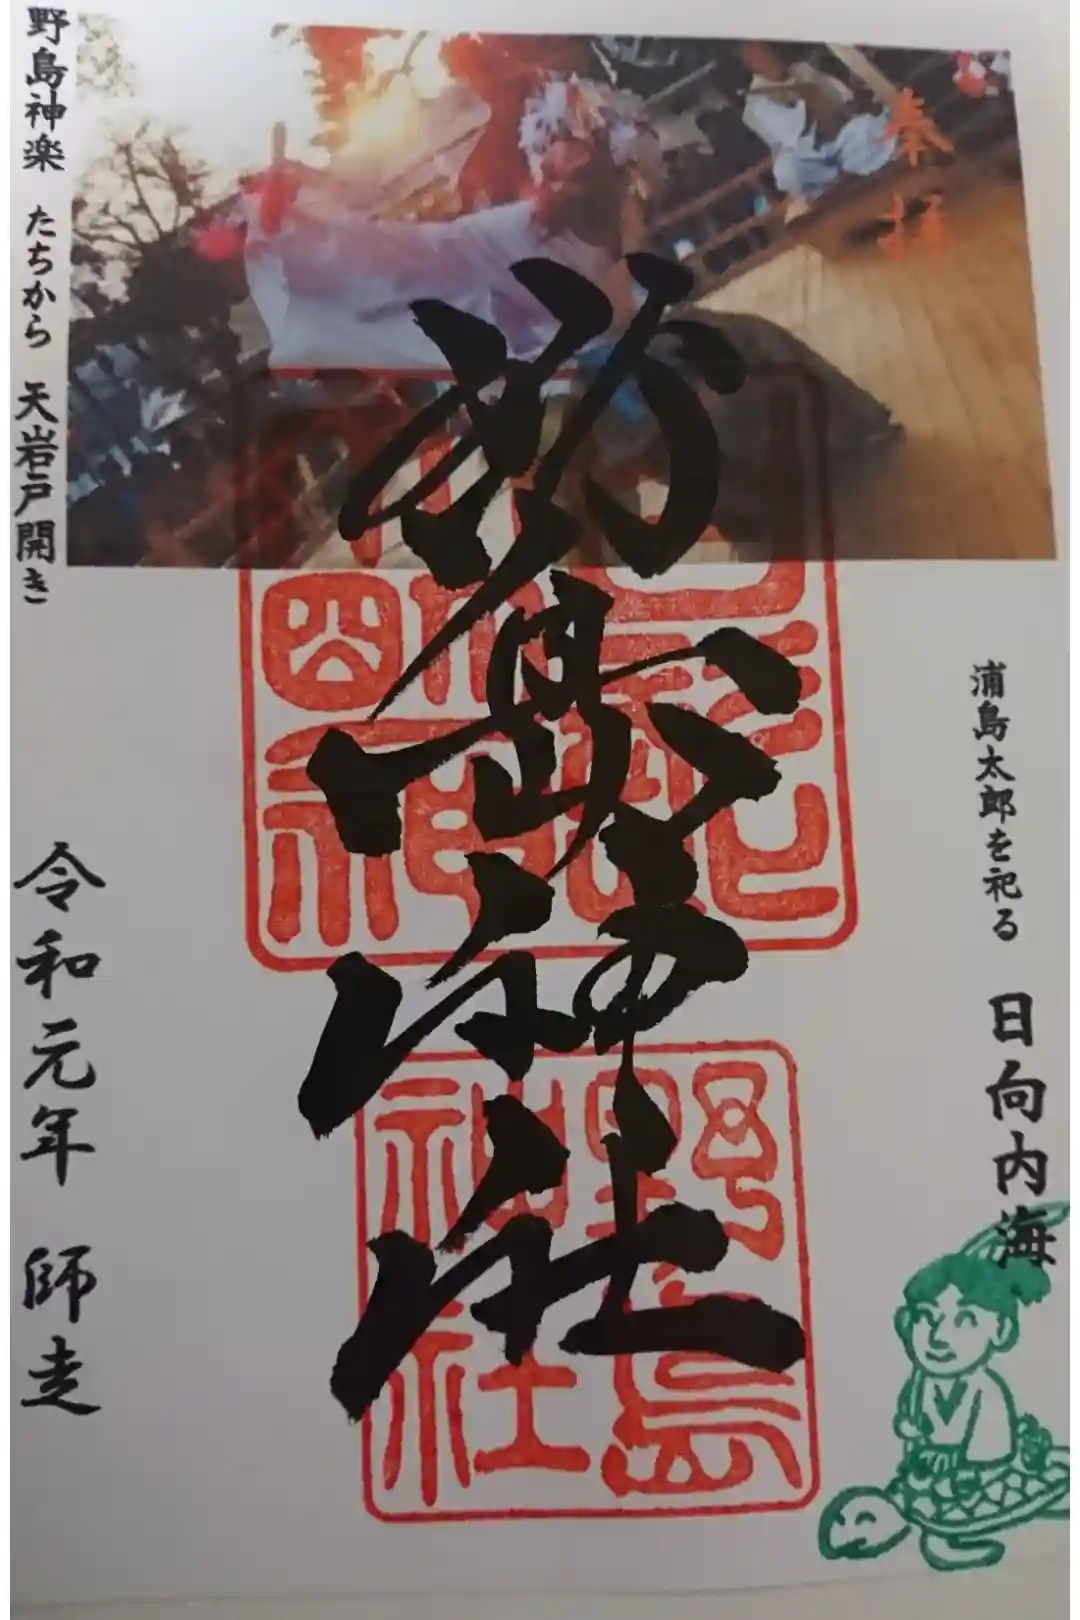 奉拝
浦島太郎を祀る 日向内海
野島神社
野島神社
野島神楽 たちから 天岩戸開き
令和元年 師走